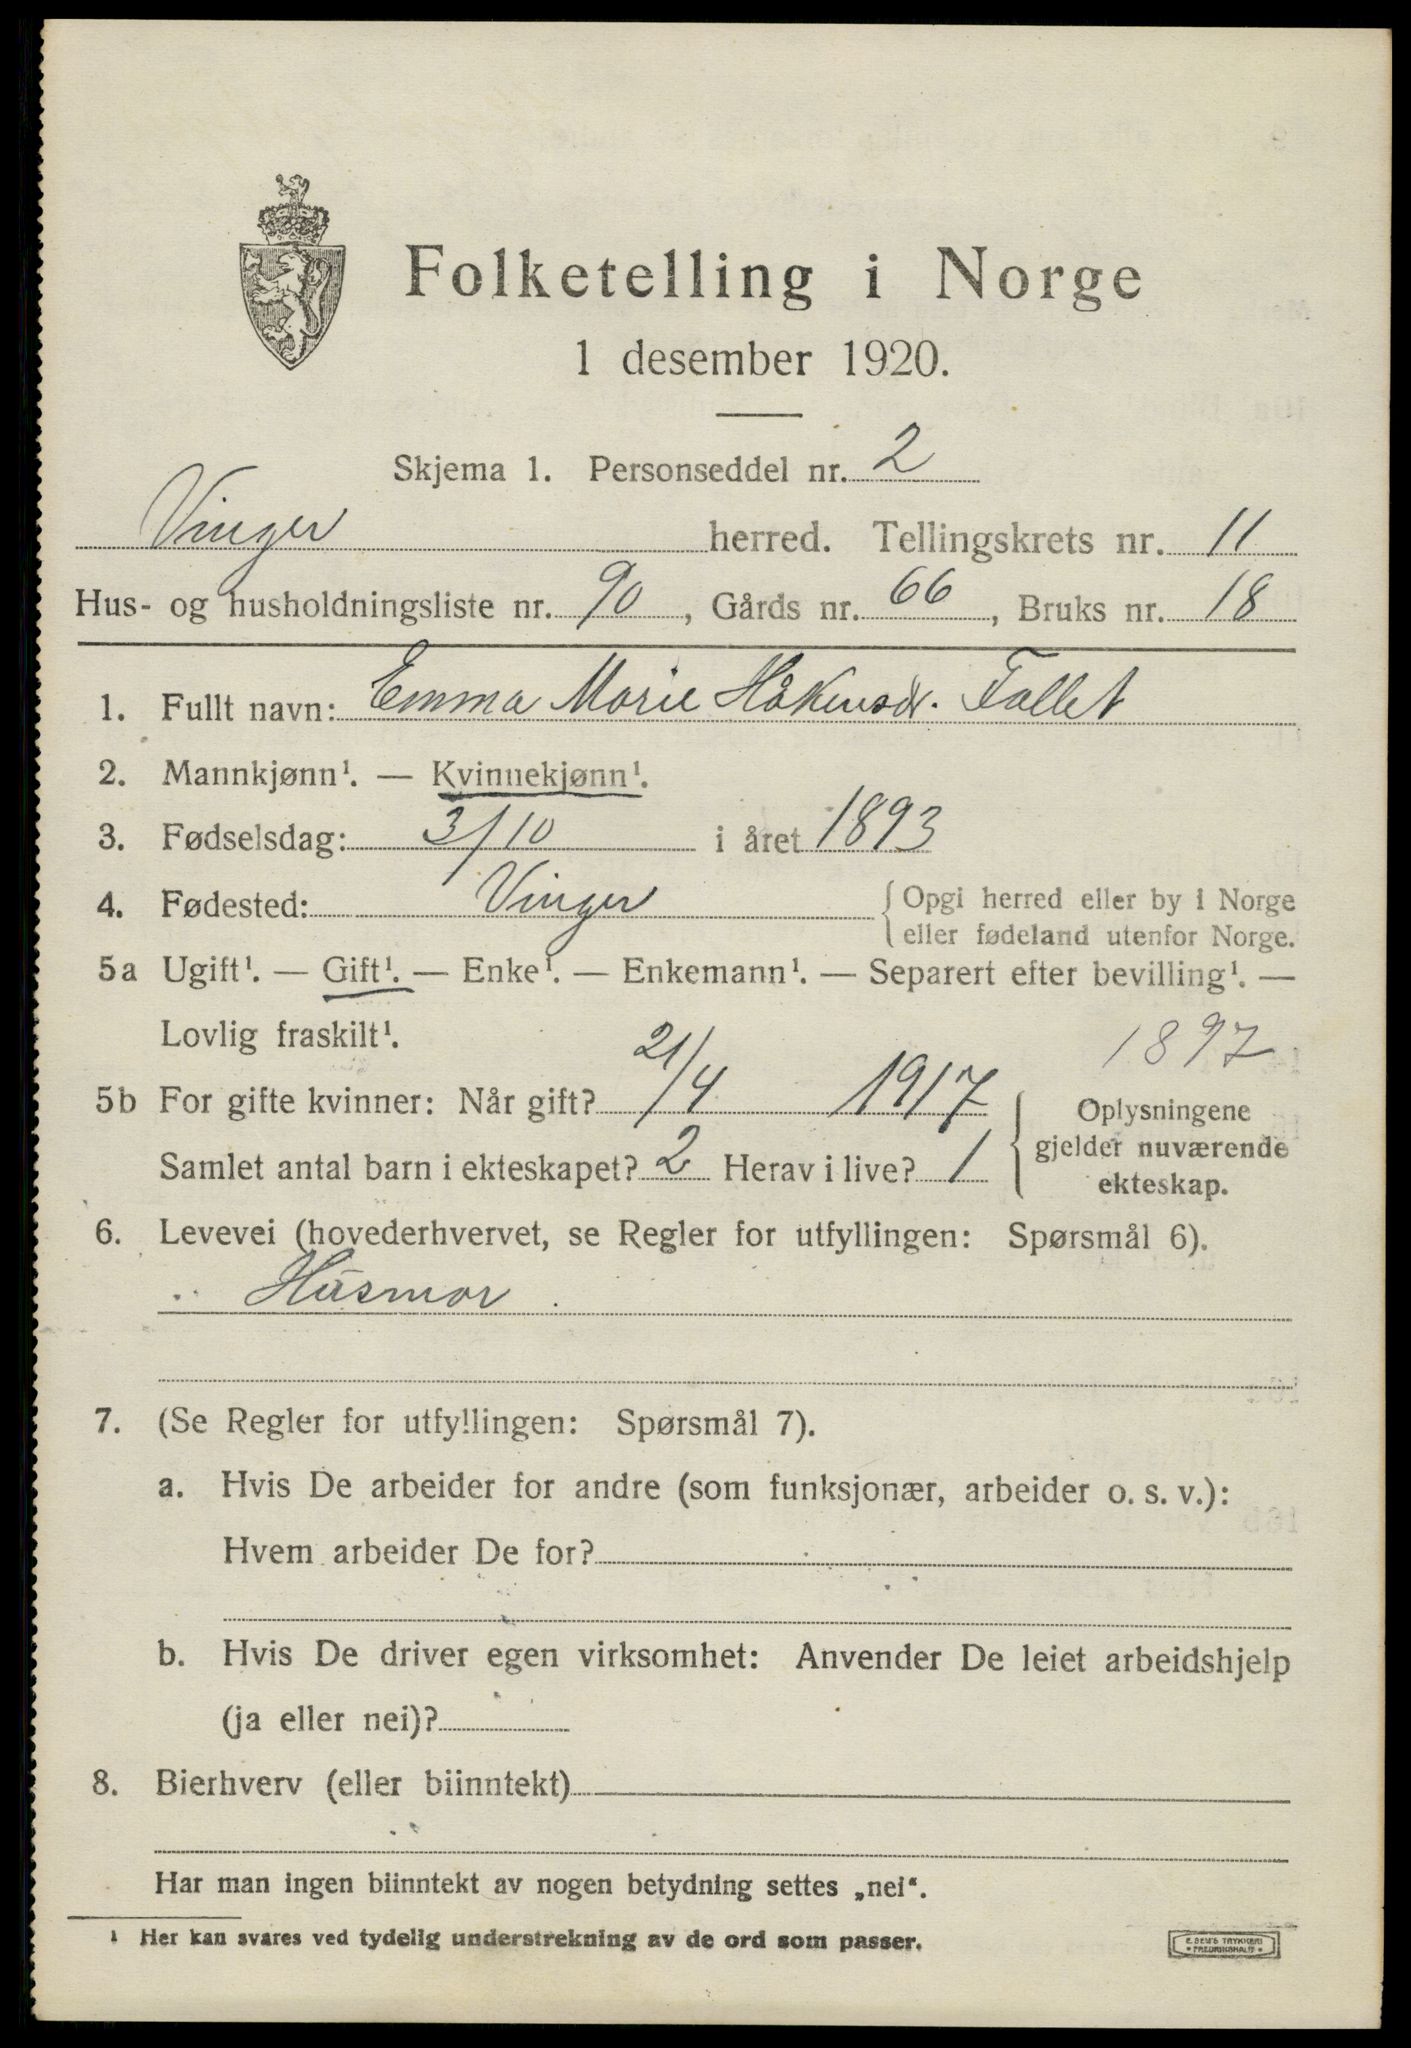 Folketelling i Norge
1 desember 1920.
Skjema 1. Personseddel nr. 2
Vinger herred. Tellingskrets nr. 11
Hus- og husholdningsliste nr. 90, Gårds nr. 66, Bruks nr. 18
1. Fullt navn: Emma Marie Håkensdr. Fallet
2. Mannkjønn¹. — Kvinnekjønn¹.
3. Fødselsdag: 3/10 i året 1893
4. Fødested: Vinger {Opgi herred eller by i Norge
eller fødeland utenfor Norge.
5a Ugift¹. — Gift¹. — Enke¹. — Enkemann¹. — Separert efter bevilling¹. —
Lovlig fraskilt¹. 1897
5b For gifte kvinner: Når gift? 21/4 1917
Samlet antal barn i ekteskapet? 2 Herav i live? 1
{Oplysningene
gjelder nuværende
ekteskap.
6. Levevei (hovederhvervet, se Regler for utfyllingen: Spørsmål 6).
Husmor
7. (Se Regler for utfyllingen: Spørsmål 7).
a. Hvis De arbeider for andre (som funksjonær, arbeider o. s. v.):
Hvem arbeider De for?
b. Hvis De driver egen virksomhet: Anvender De leiet arbeidshjelp
(ja eller nei)?
8. Bierhverv (eller biinntekt)
Har man ingen biinntekt av nogen betydning settes „nei“.
¹ Her kan svares ved tydelig understrekning av de ord som passer.
E. SEM'S TRYKKERI
• FREDRIKSHALD •